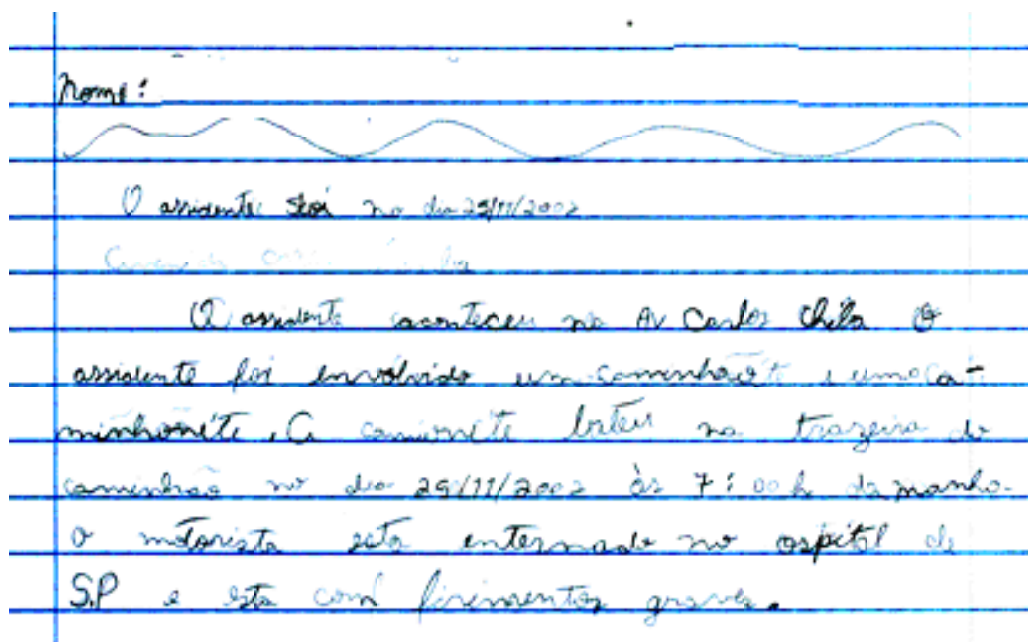 Nome:
O assidente foi no dia 29/11/2002
O assidente aconteceu na Av Carlos Chila O
assidente foi envolvido um caminhão e uma ca-
minhonete. A camionete bateu na trazeira do
caminhão no dia 29/11/2002 às 7:00 h da manhã.
O motorista seta enternado no ospital de
S.P e esta com firimentos graves.